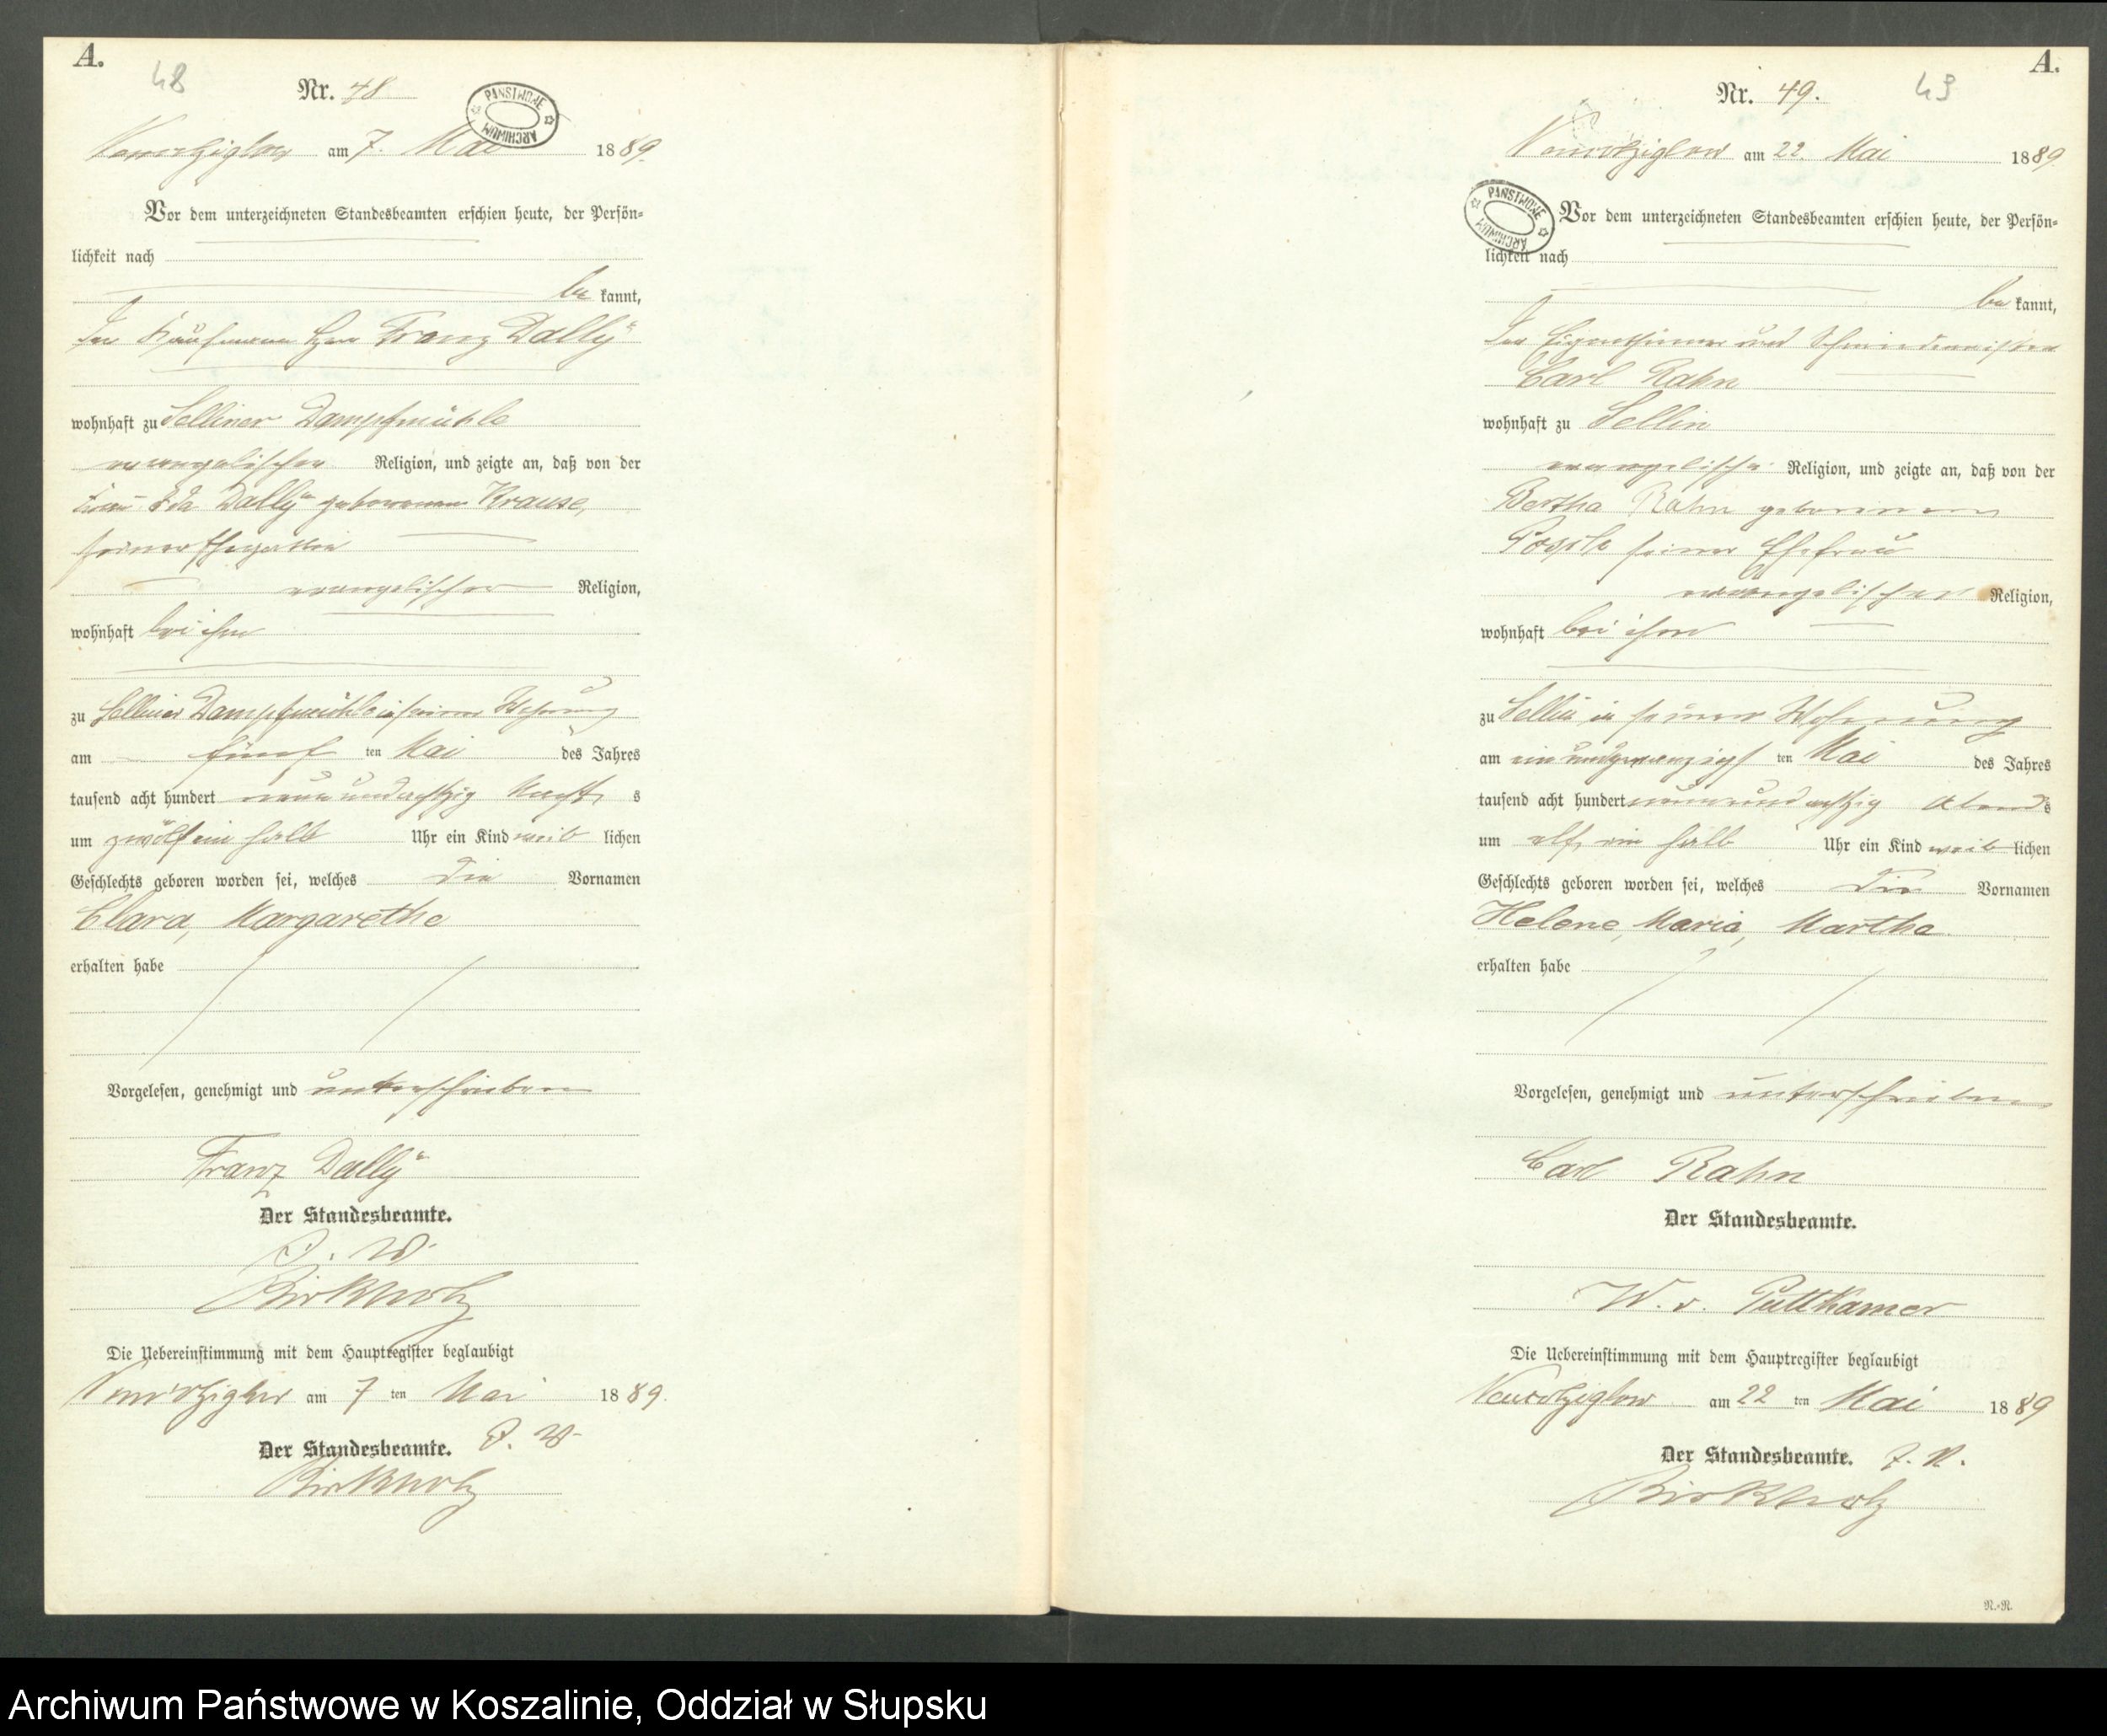 A.
48
Nr. 48
PAŃSTWOWE ARCHIWUM
am 7. Mai 1889.
Vor dem unterzeichneten Standesbeamten erschien heute, der Persön-
lichkeit nach
be kannt,
der Kaufmann Herr Franz Dally
wohnhaft zu Selliner Dampfmühle
evangelischer Religion, und zeigte an, daß von der
Frau Ida Dally geborenen Krause,
seiner Ehegattin
evangelischer Religion,
wohnhaft bei ihm
zu Selliner Dampfmühle in seiner Wohnung
am fünf ten Mai des Jahres
tausend acht hundert neunundachtzig Nachts
um zwölf ein halb Uhr ein Kind weib lichen
Geschlechts geboren worden sei, welches die Vornamen
Clara, Margarethe
erhalten habe
Vorgelesen, genehmigt und unterschrieben
Franz Dally
Der Standesbeamte.
J. V.
Birkholz
Die Uebereinstimmung mit dem Hauptregister beglaubigt
am 7 ten Mai 1889.
Der Standesbeamte. J. V.
Birkholz
A.
49
Nr. 49.
am 22. Mai 1889
PAŃSTWOWE ARCHIWUM
Vor dem unterzeichneten Standesbeamten erschien heute, der Persön-
lichkeit nach
be kannt,
der Eigenthümer und Schmiedemeister
Carl Rahn
wohnhaft zu Sellin
evangelischer Religion, und zeigte an, daß von der
Bertha Rahn geborenen
seiner Ehefrau
evangelischer Religion,
wohnhaft bei ihm
zu Sellin in seiner Wohnung
am ein und zwanzigs ten Mai des Jahres
tausend acht hundert neunundachtzig Abends
um elf ein halb Uhr ein Kind weib lichen
Geschlechts geboren worden sei, welches die Vornamen
Helene, Maria, Martha
erhalten habe
Vorgelesen, genehmigt und unterschrieben
Carl Rahn
Der Standesbeamte.
W. v. Puttkamer
Die Uebereinstimmung mit dem Hauptregister beglaubigt
am 22 ten Mai 1889
Der Standesbeamte. J. V.
Birkholz
R.-R.
Archiwum Państwowe w Koszalinie, Oddział w Słupsku